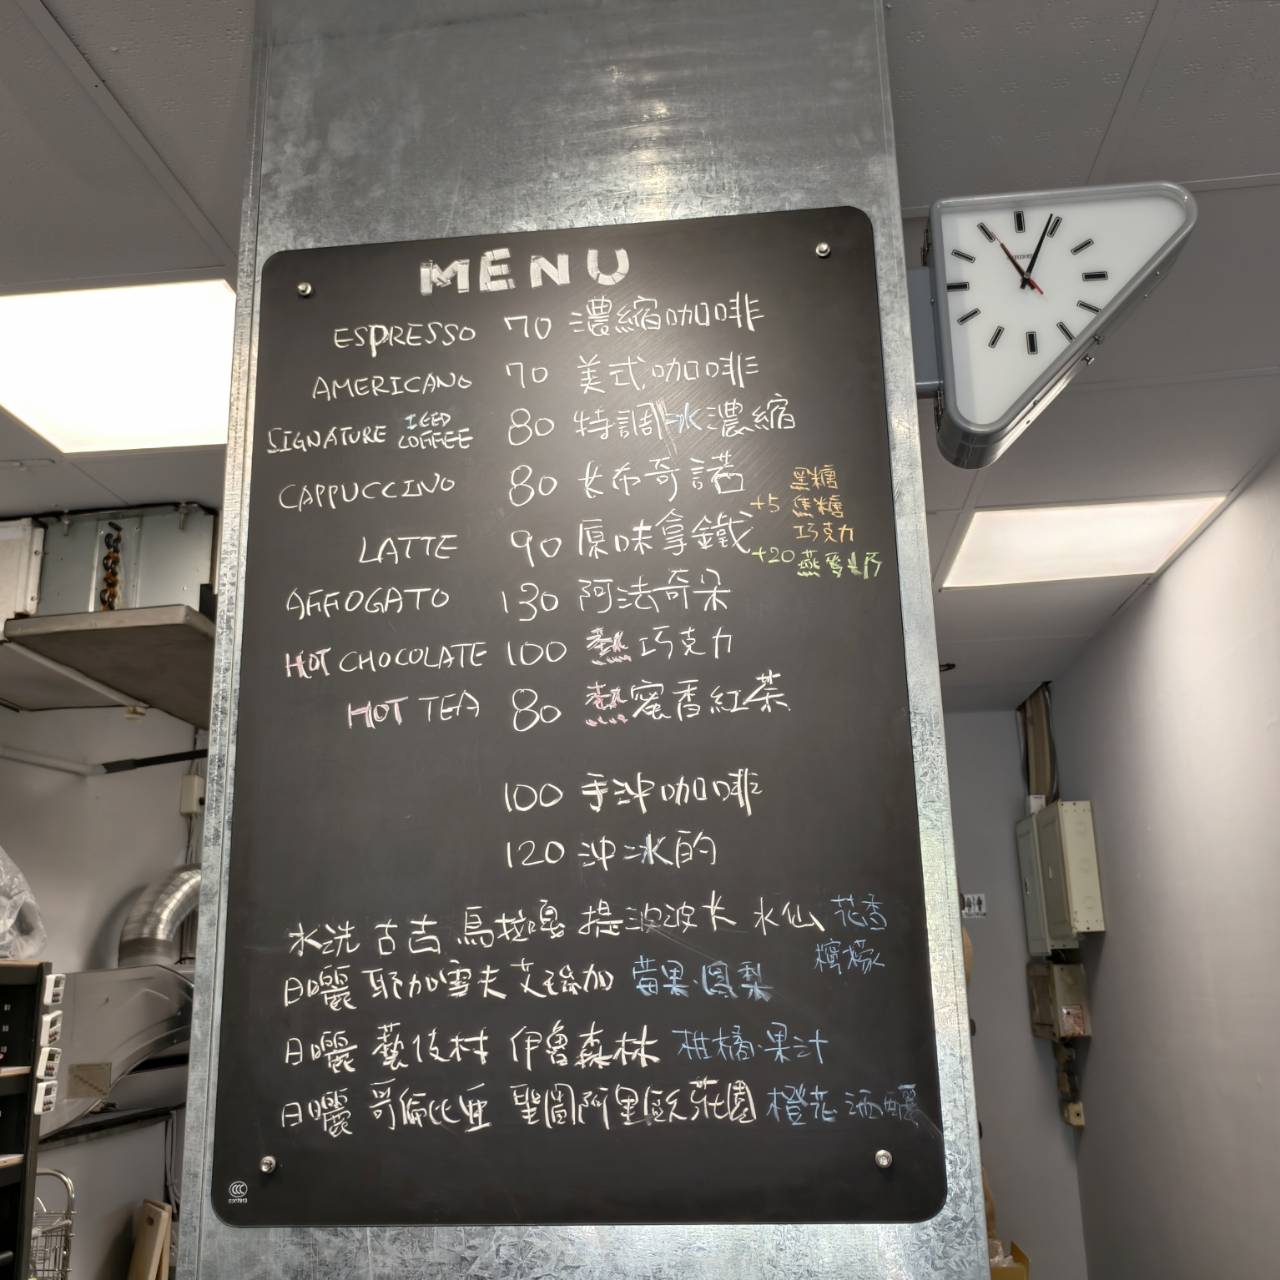 MENU
ESPRESSO 70 濃縮咖啡
AMERICANO 70 美式咖啡
SIGNATURE ICED COFFEE 80 特調冰濃縮
CAPPUCCINO 80 卡布奇諾
黑糖
+5 焦糖
巧克力
LATTE 90 原味拿鐵
+20 燕麥奶
AFFOGATO 130 阿法奇朵
HOT CHOCOLATE 100 熱巧克力
HOT TEA 80 熱蜜香紅茶
100 手沖咖啡
120 沖冰的
水洗 古吉 烏拉嘎 提波波卡 水仙 花香
檸檬
日曬 耶加雪夫 艾瑞加 莓果·鳳梨
日曬 藝伎村 伊魯森林 柑橘·果汁
日曬 哥倫比亞 聖圖阿里歐莊園 橙花